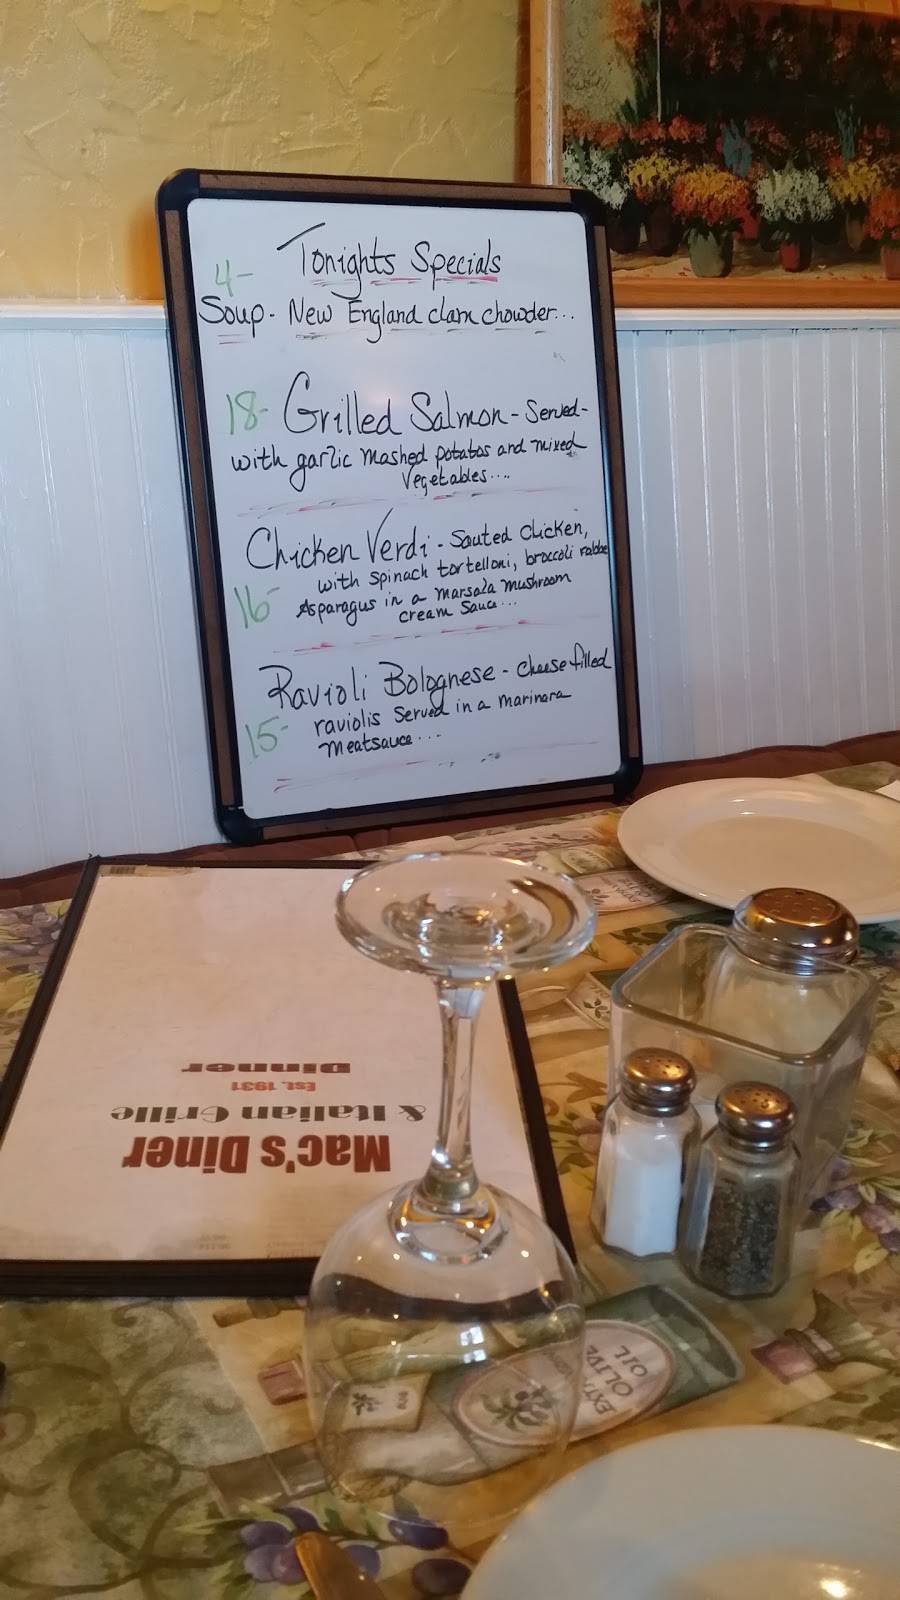 Tonights Specials
4-
Soup - New England clam chowder...
18- Grilled Salmon - Served -
with garlic mashed potatos and mixed
Vegetables....
Chicken Verdi - Sauted Chicken,
with spinach tortelloni, broccoli rabbe
16- Asparagus in a marsala mushroom
cream sauce...
Ravioli Bolognese - cheese filled
15- raviolis served in a marinara
meatsauce...
Mac's Diner
& Italian Grille
Est. 1931
Dinner
EXTRA
OLIVE
OIL